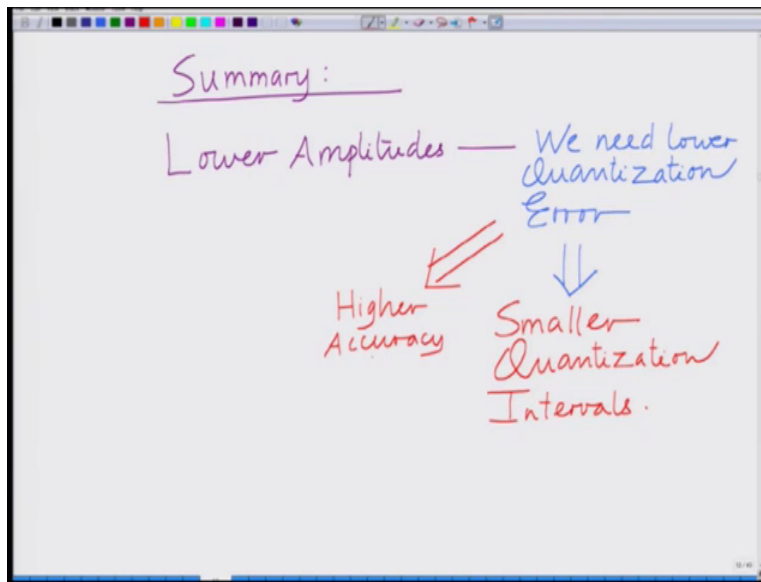 Summary:
Lower Amplitudes — We need lower
Quantization
Error
Higher
Accuracy
Smaller
Quantization
Intervals.